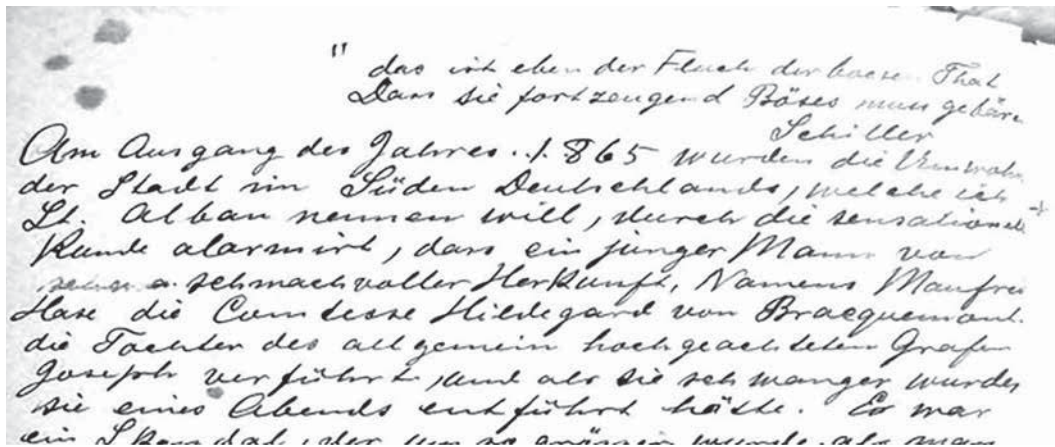 " das ist eben der Fluch der boesen That
Dass sie fortzeugend Böses muss gebären
Schiller
Am Ausgang des Jahres 1865 wurden die Umwohn
der Stadt im Süden Deutschlands, welche ich
St. Alban nennen will, durch die sensationelle
Kunde alarmirt, dass ein junger Mann von
schmachvoller Herkunft, Namens Manfred
Hase die Comtesse Hildegard von Bracquemont.
die Tochter des allgemein hochgeachteten Grafen
Joseph verführt, und als sie schwanger wurde,
sie eines Abends entführt hätte. Es war
ein Skandal, der um so grösser wurde, als man